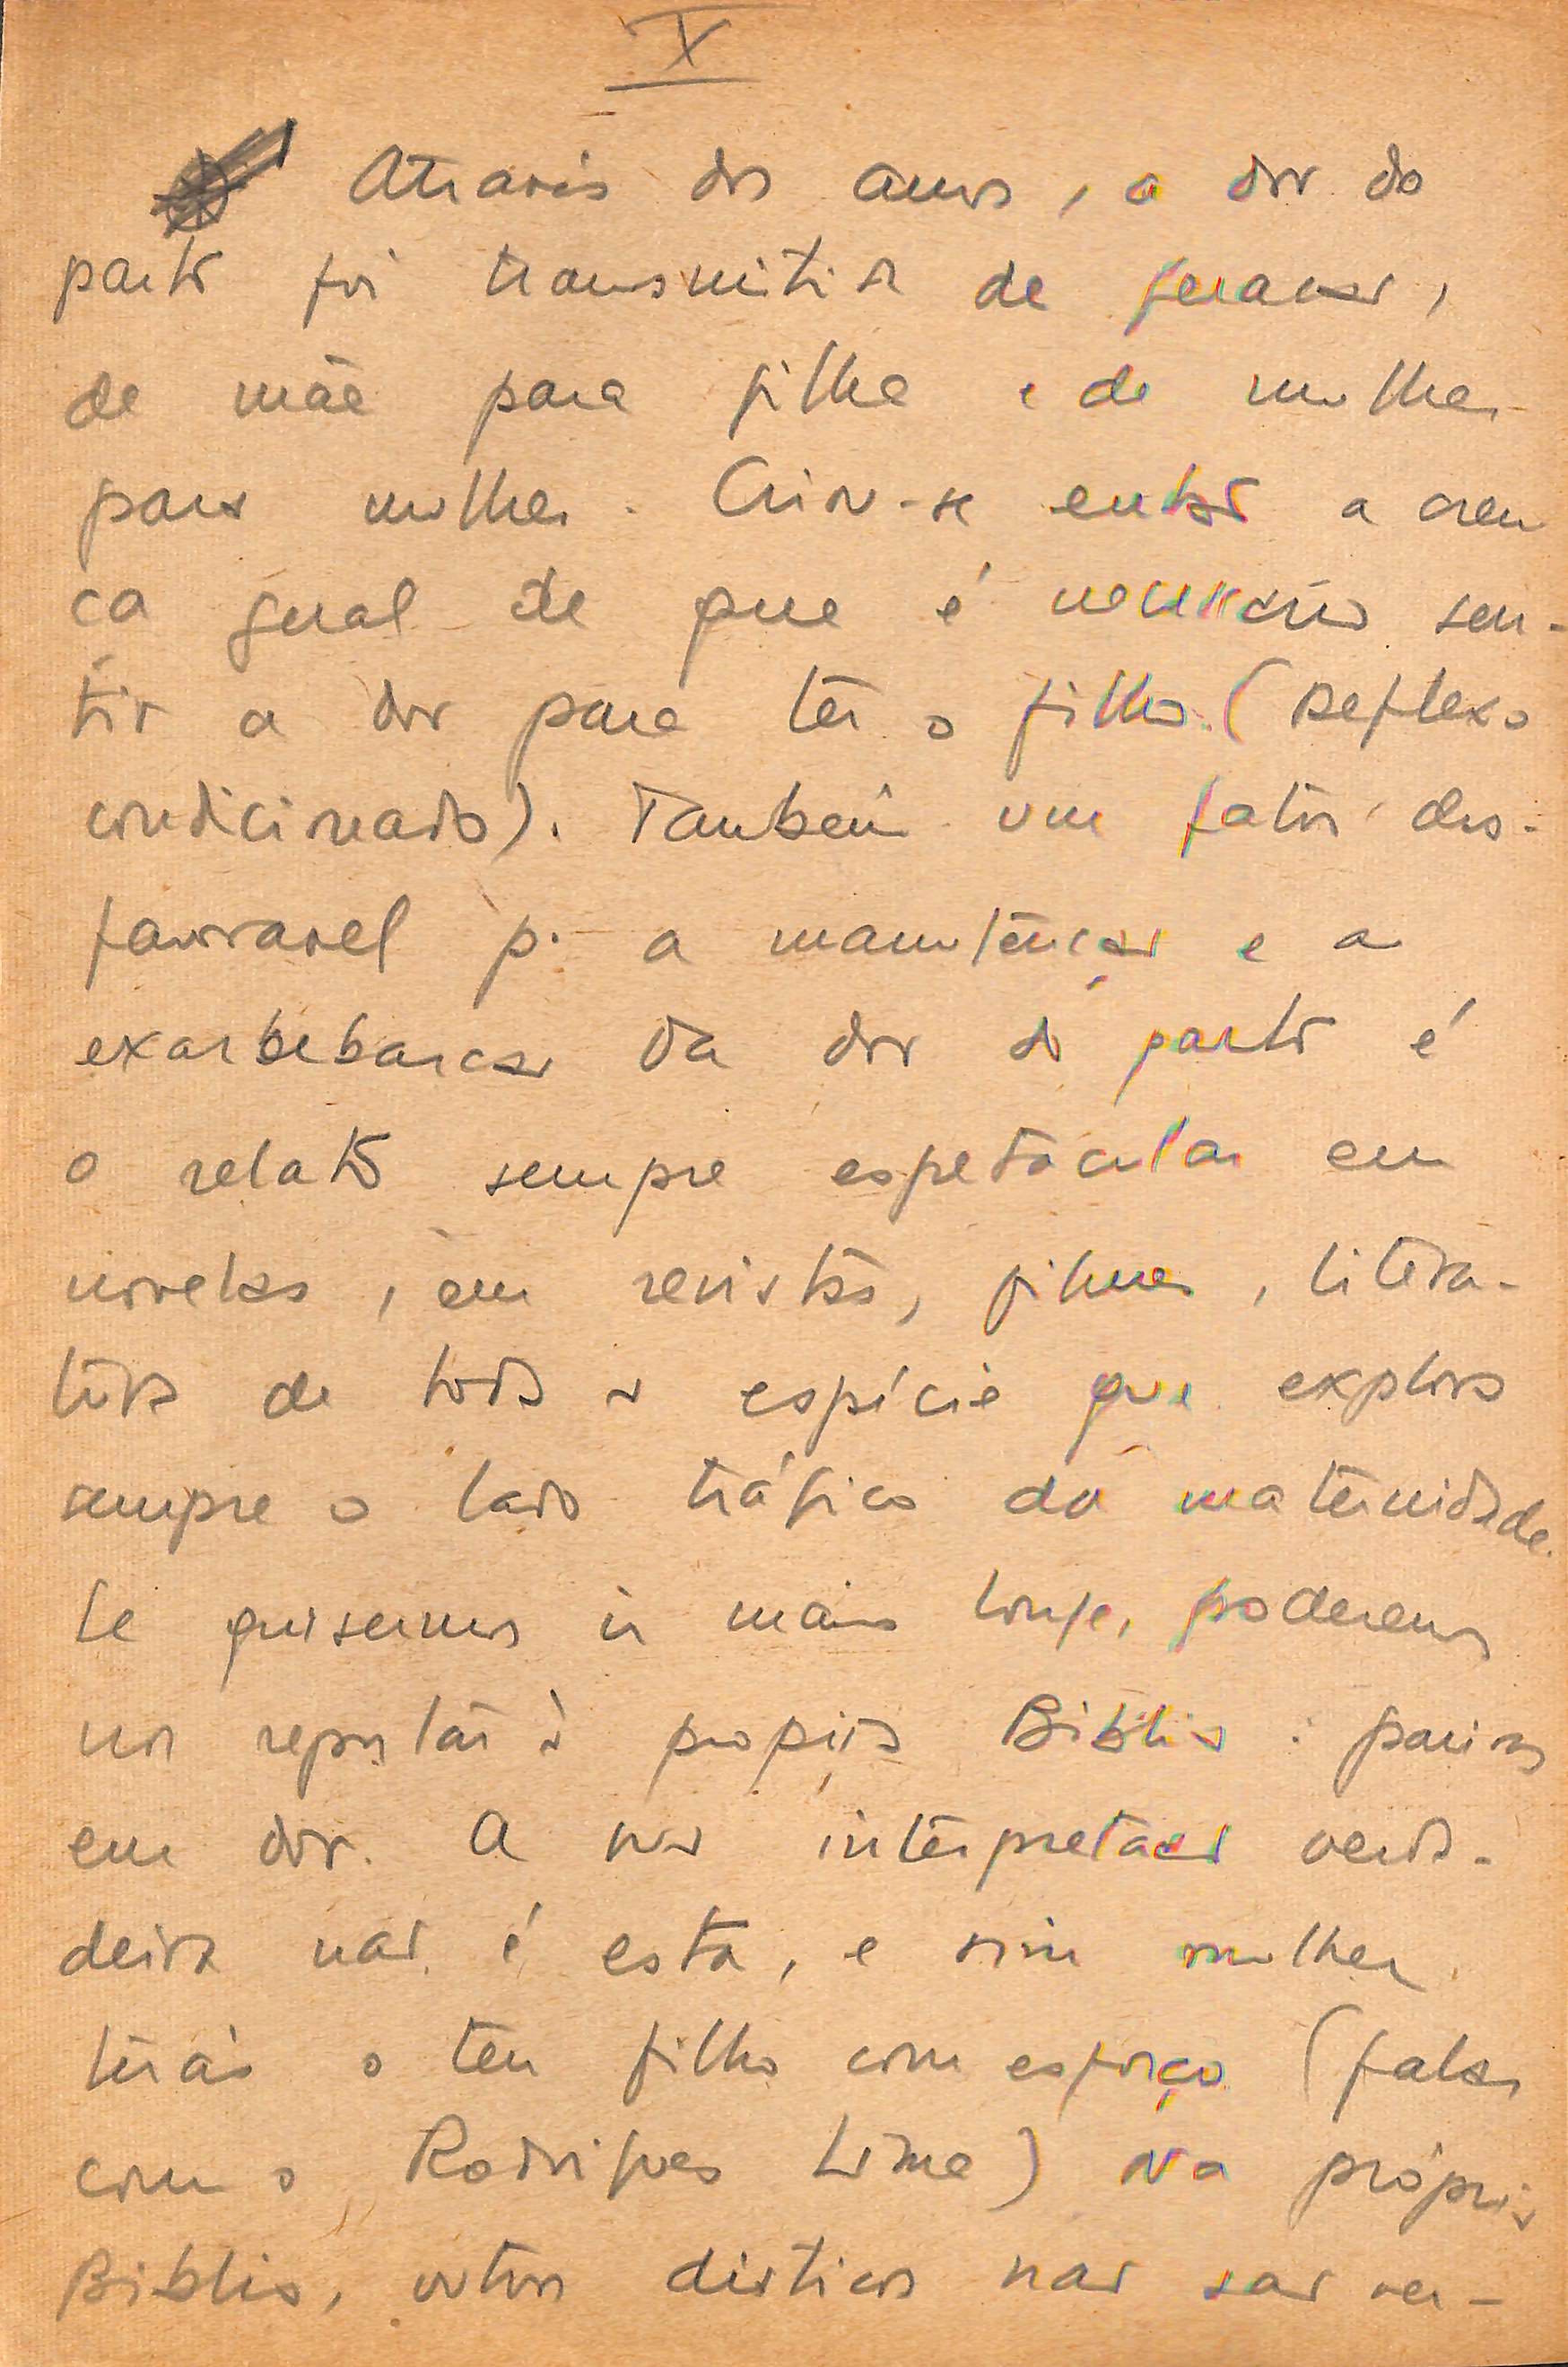 X
Através dos anos, a dor do
parto foi transmitida de geracao,
de mãe para filha e de mulher
para mulher. Criou-se então a cren
ca geral de que é necessário sen-
tir a dor para ter o filho. (Reflexo
condicionado). Também um fator des-
favoravel p. a manutenção e a
exarbebarcao da dor do parto é
o relato sempre espetacular em
novelas, em revistas, filmes, litera-
tura de toda a espécie que explora
sempre o lado trágico da maternidade.
Se quisermos ir mais longe, poderemos
nos reportar à propria Biblia: pariras
em dor. A interpretacao verda-
deira não é esta, e sim mulher
terás o teu filho com esforço (falar
com o Rodrigues Lima) Na própria
Biblia, outros disticos nao sao ver-